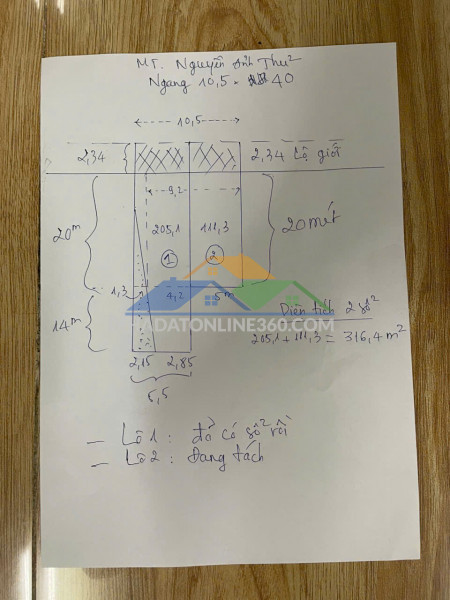 MT. Nguyễn Ảnh Thủ
Ngang 10,5 × 40
10,5
2,34
2,34 Lộ giới
9,2
20m
205,1
111,3
20 mét
1
2
1,3
4,2
5m
Diện tích 2 sổ
ADATONLINE360.COM
14m
205,1 + 111,3 = 316,4 m²
2,15 2,85
5,5
- Lô 1 : đã có sổ rồi
- Lô 2 : Đang tách